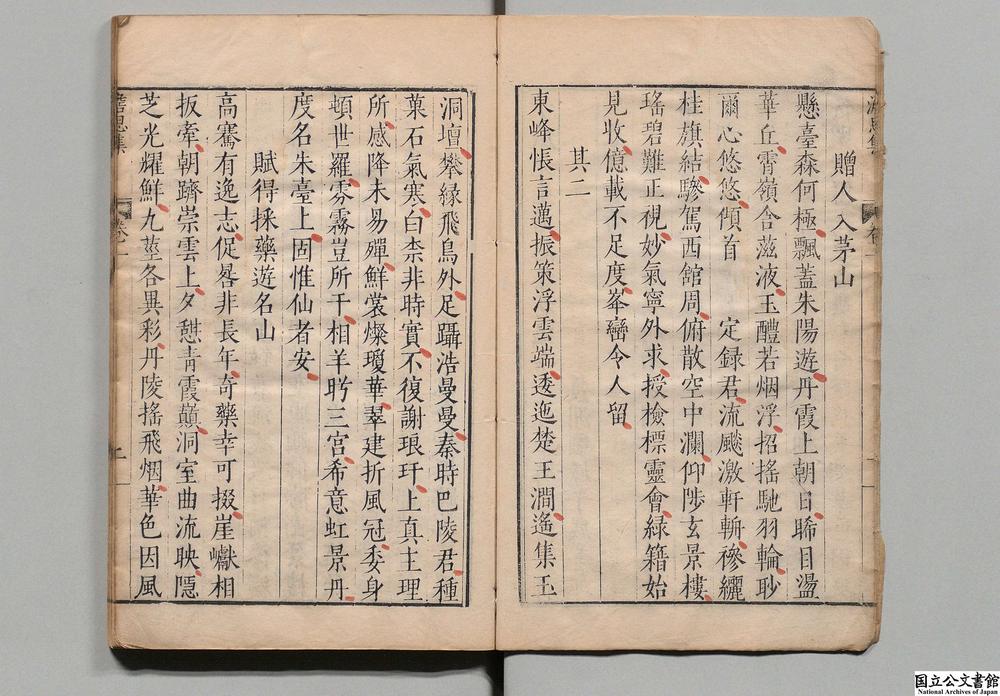 贈人入茅山
懸臺森何極飄蓋朱陽遊丹霞上朝日睎目盪
華丘霄嶺含滋液玉醴若烟浮招搖馳羽輪眇
爾心悠悠傾首　定録君流飈激軒輈穇纚
桂旗結驂駕西舘周俯散空中瀾仰陟玄景樓
瑤碧難正視妙氣寧外求授檢標靈會緑籍始
見收億載不足度峯巒令人留
其二
東峰悵言邁振策浮雲端逶迤楚王澗遙集玉
洞壇攀縁飛鳥外足躡浩曼曼秦時巴陵君種
菓石氣寒白柰非時實不復謝琅玕上真主理
所感降未易殫鮮裳燦瓊華翠建折風冠委身
頓世羅雰霧豈所干相羊盻三宮希意虹景丹
度名朱臺上固惟仙者安
賦得採藥遊名山
高騫有逸志促晷非長年奇藥幸可掇崖巘相
扳牽朝躋崇雲上夕憇青霞巔洞室曲流映隱
芝光耀鮮九莖各異彩丹陵搖飛烟華色因風
卷一
国立公文書館
National Archives of Japan